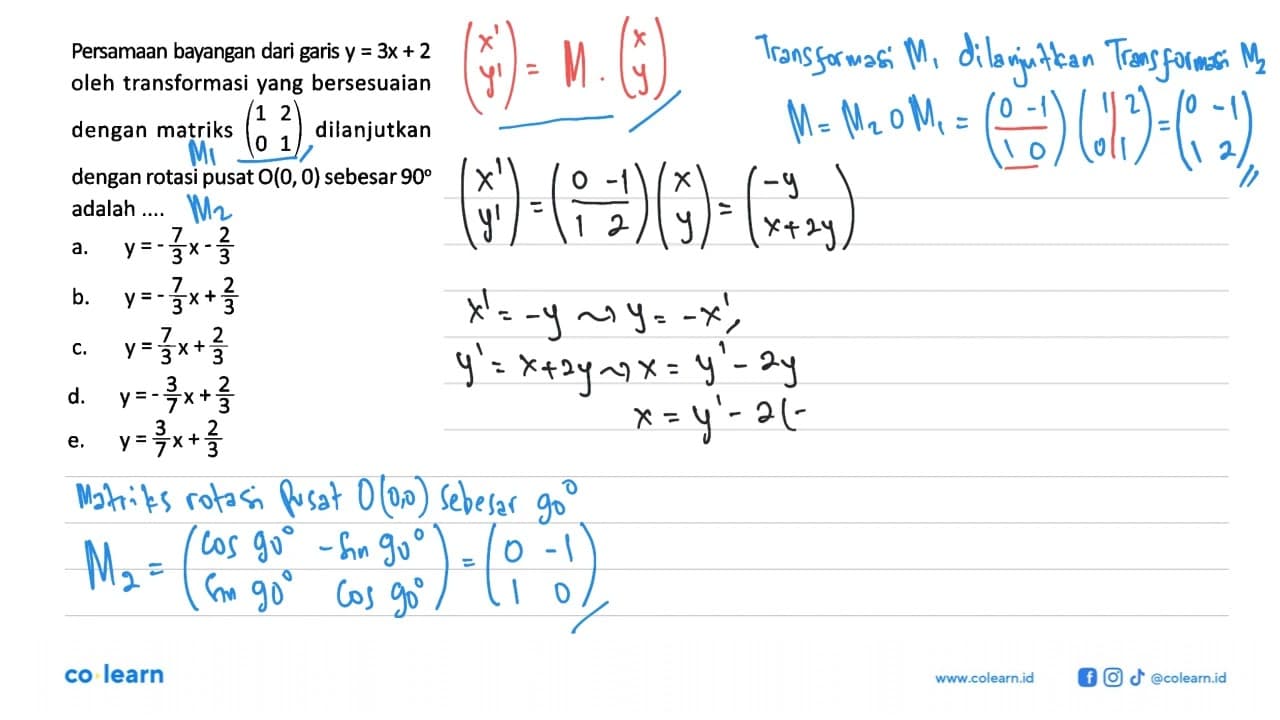 Persamaan bayangan dari garis y = 3x + 2
oleh transformasi yang bersesuaian
dengan matriks (1 2 / 0 1) dilanjutkan
M₁
dengan rotasi pusat O(0, 0) sebesar 90°
adalah .... M₂
a. y = -7/3x - 2/3
b. y = -7/3x + 2/3
c. y = 7/3x + 2/3
d. y = -3/7x + 2/3
e. y = 3/7x + 2/3
(x' / y') = M . (x / y)
Transformasi M₁ dilanjutkan Transformasi M₂
M = M₂ o M₁ = (0 -1 / 1 0) (1 2 / 0 1) = (0 -1 / 1 2)
(x' / y') = (0 -1 / 1 2) (x / y) = (-y / x+2y)
x' = -y ⇝ y = -x'
y' = x+2y ⇝ x = y' - 2y
x = y' - 2(-
Matriks rotasi Pusat O(0,0) Sebesar 90°
M₂ = (cos 90° -sin 90° / sin 90° cos 90°) = (0 -1 / 1 0)
co learn
www.colearn.id
@colearn.id